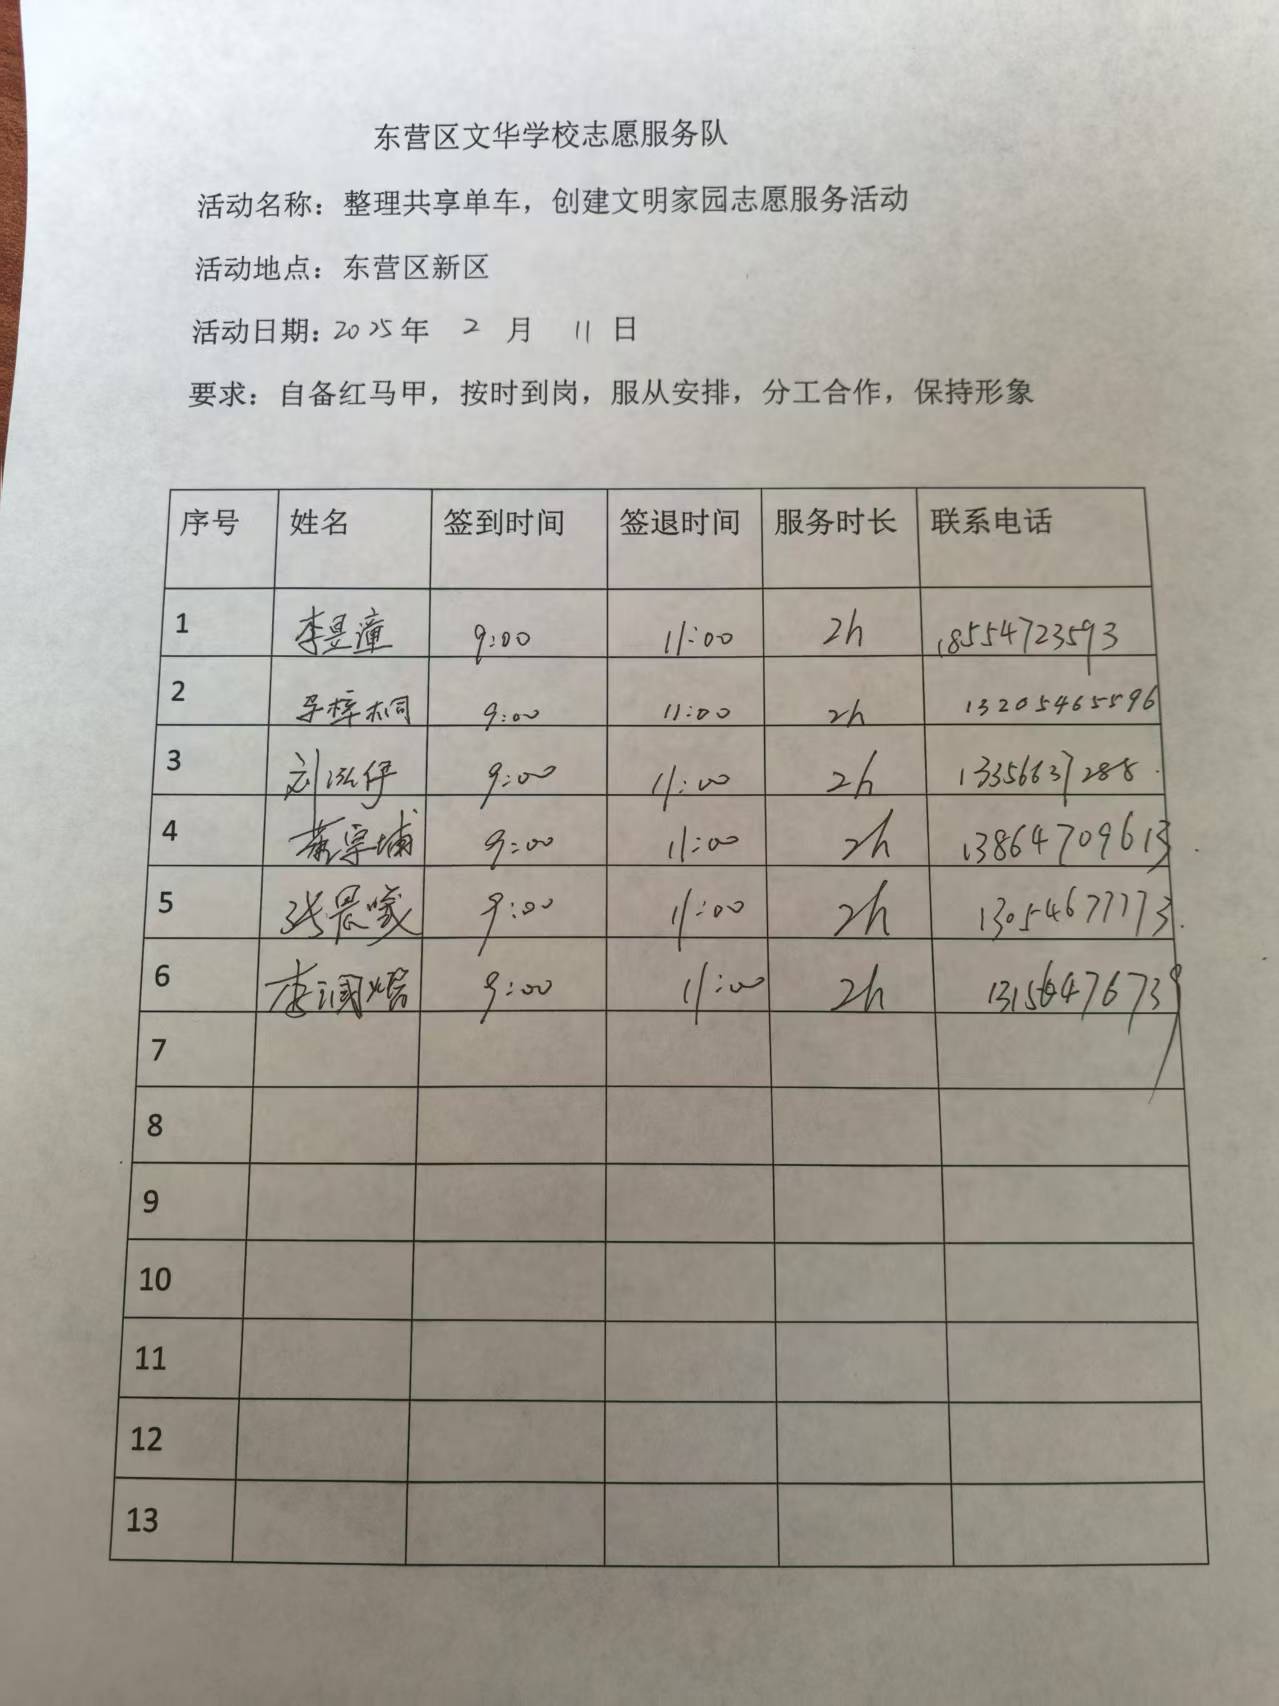 东营区文华学校志愿服务队
活动名称：整理共享单车，创建文明家园志愿服务活动
活动地点：东营区新区
活动日期：2025年 2 月 11 日
要求：自备红马甲，按时到岗，服从安排，分工合作，保持形象
序号 姓名 签到时间 签退时间 服务时长 联系电话
1 李昱潼 9:00 11:00 2h 18554723593
2 梓桐 9:00 11:00 2h 13205465596
3 刘泓伊 9:00 11:00 2h 13356637288
4 董宗埔 9:00 11:00 2h 13864709613
5 张晨曦 9:00 11:00 2h 13054677773
6 李润熠 9:00 11:00 2h 13156476739
7
8
9
10
11
12
13